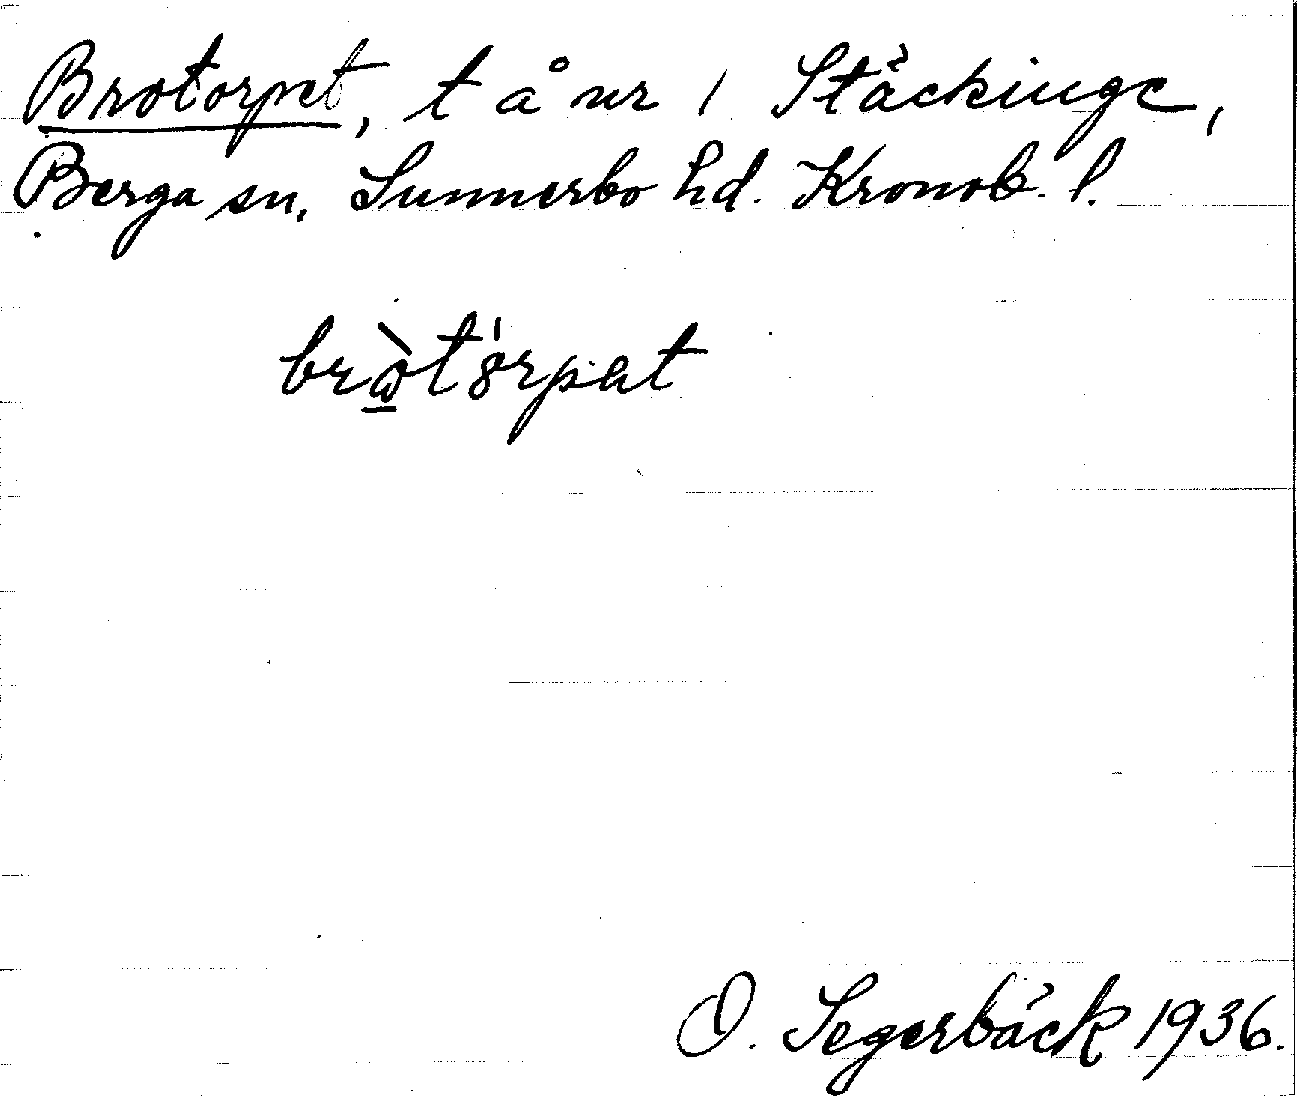 Brotorpet, t å nr 1 Stäckinge,
Berga sn. Sunnerbo hd. Kronob. l.
bròtórpat
O. Segerbäck 1936.